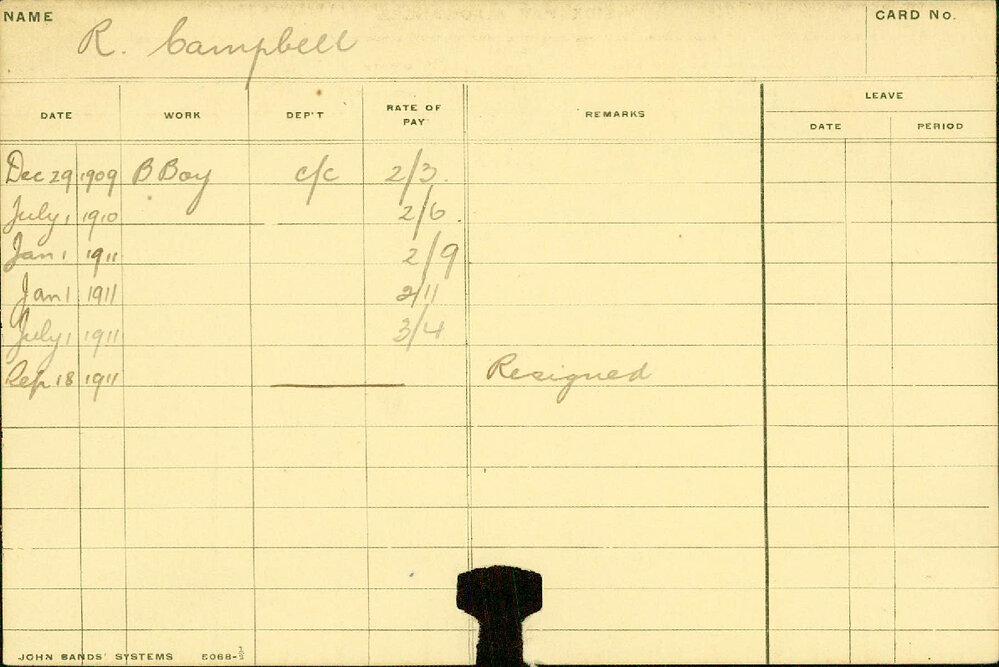 NAME R. Campbell CARD No.
DATE WORK DEP'T RATE OF PAY REMARKS LEAVE
DATE PERIOD
Dec 29 1909 B Boy c/c 2/3.
July 1 1910 2/6.
Jan 1 1911 2/9
Jan 1 1911 2/11
July 1 1911 3/4
Sep 18 1911 Resigned
JOHN SANDS' SYSTEMS